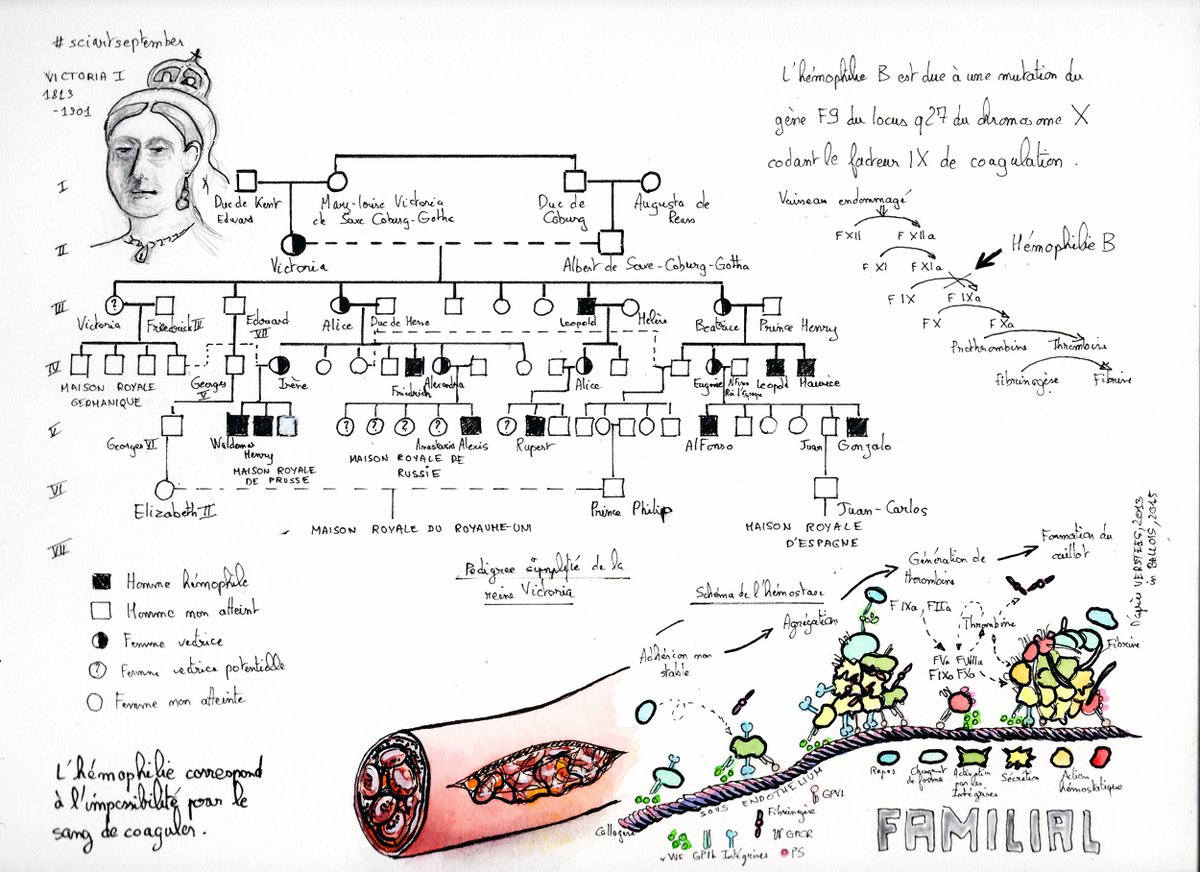 # sciartseptember
VICTORIA I
1813
-1901
L'hémophilie B est due à une mutation du
gène F9 du locus q27 du chromosome X
codant le facteur IX de coagulation.
I
Duc de Kent
Edward
Mary-louise Victoria
de Saxe Coburg-Gotha
Duc de
Coburg
Augusta de
Reuss
II
Victoria
Albert de Saxe-Coburg-Gotha
Vaisseau endommagé
FXII
FXIIa
Hémophilie B
F XI
FXIa
F IX
F IXa
FX
FXa
Prothrombine
Thrombine
Fibrinogène
Fibrine
III
Victoria
Friedrich III
Edouard
VII
Alice
Duc de Hesse
Leopold
Hélène
Beatrice
Prince Henry
IV
MAISON ROYALE
GERMANIQUE
Georges
V
Irène
Friedrich
Alexandra
Alice
Eugenie
Leopold
Maurice
V
Georges VI
Waldemar
Henry
MAISON ROYALE
DE PRUSSE
Anastasia
Alexis
MAISON ROYALE DE
RUSSIE
Rupert
Alfonso
Juan
Gonzalo
VI
Elizabeth II
Prince Philip
Juan-Carlos
MAISON ROYALE DU ROYAUME-UNI
MAISON ROYALE
D'ESPAGNE
VII
Homme hémophile
Homme non atteint
Femme vectrice
? Femme vectrice potentielle
Femme non atteinte
Pedigree simplifié de la
reine Victoria
Schéma de l'hémostase
Adhésion non
stable
Agrégation
Génération de
thrombine
Formation du
caillot
D'après VERSTEEG, 2013
in BALLOIS, 2015
F IXa, FIIa
Thrombine
FVa FVIIIa
FIXa FXa
Fibrine
L'hémophilie correspond
à l'impossibilité pour le
sang de coaguler.
Collagène
SOUS ENDOTHELIUM
vWF GPIb Intégrines
Fibrinogène
GPVI
GPCR
PS
Repos
Changmt
de forme
Activation
par les
Intégrines
Sécrétion
Action
hémostatique
FAMILIAL